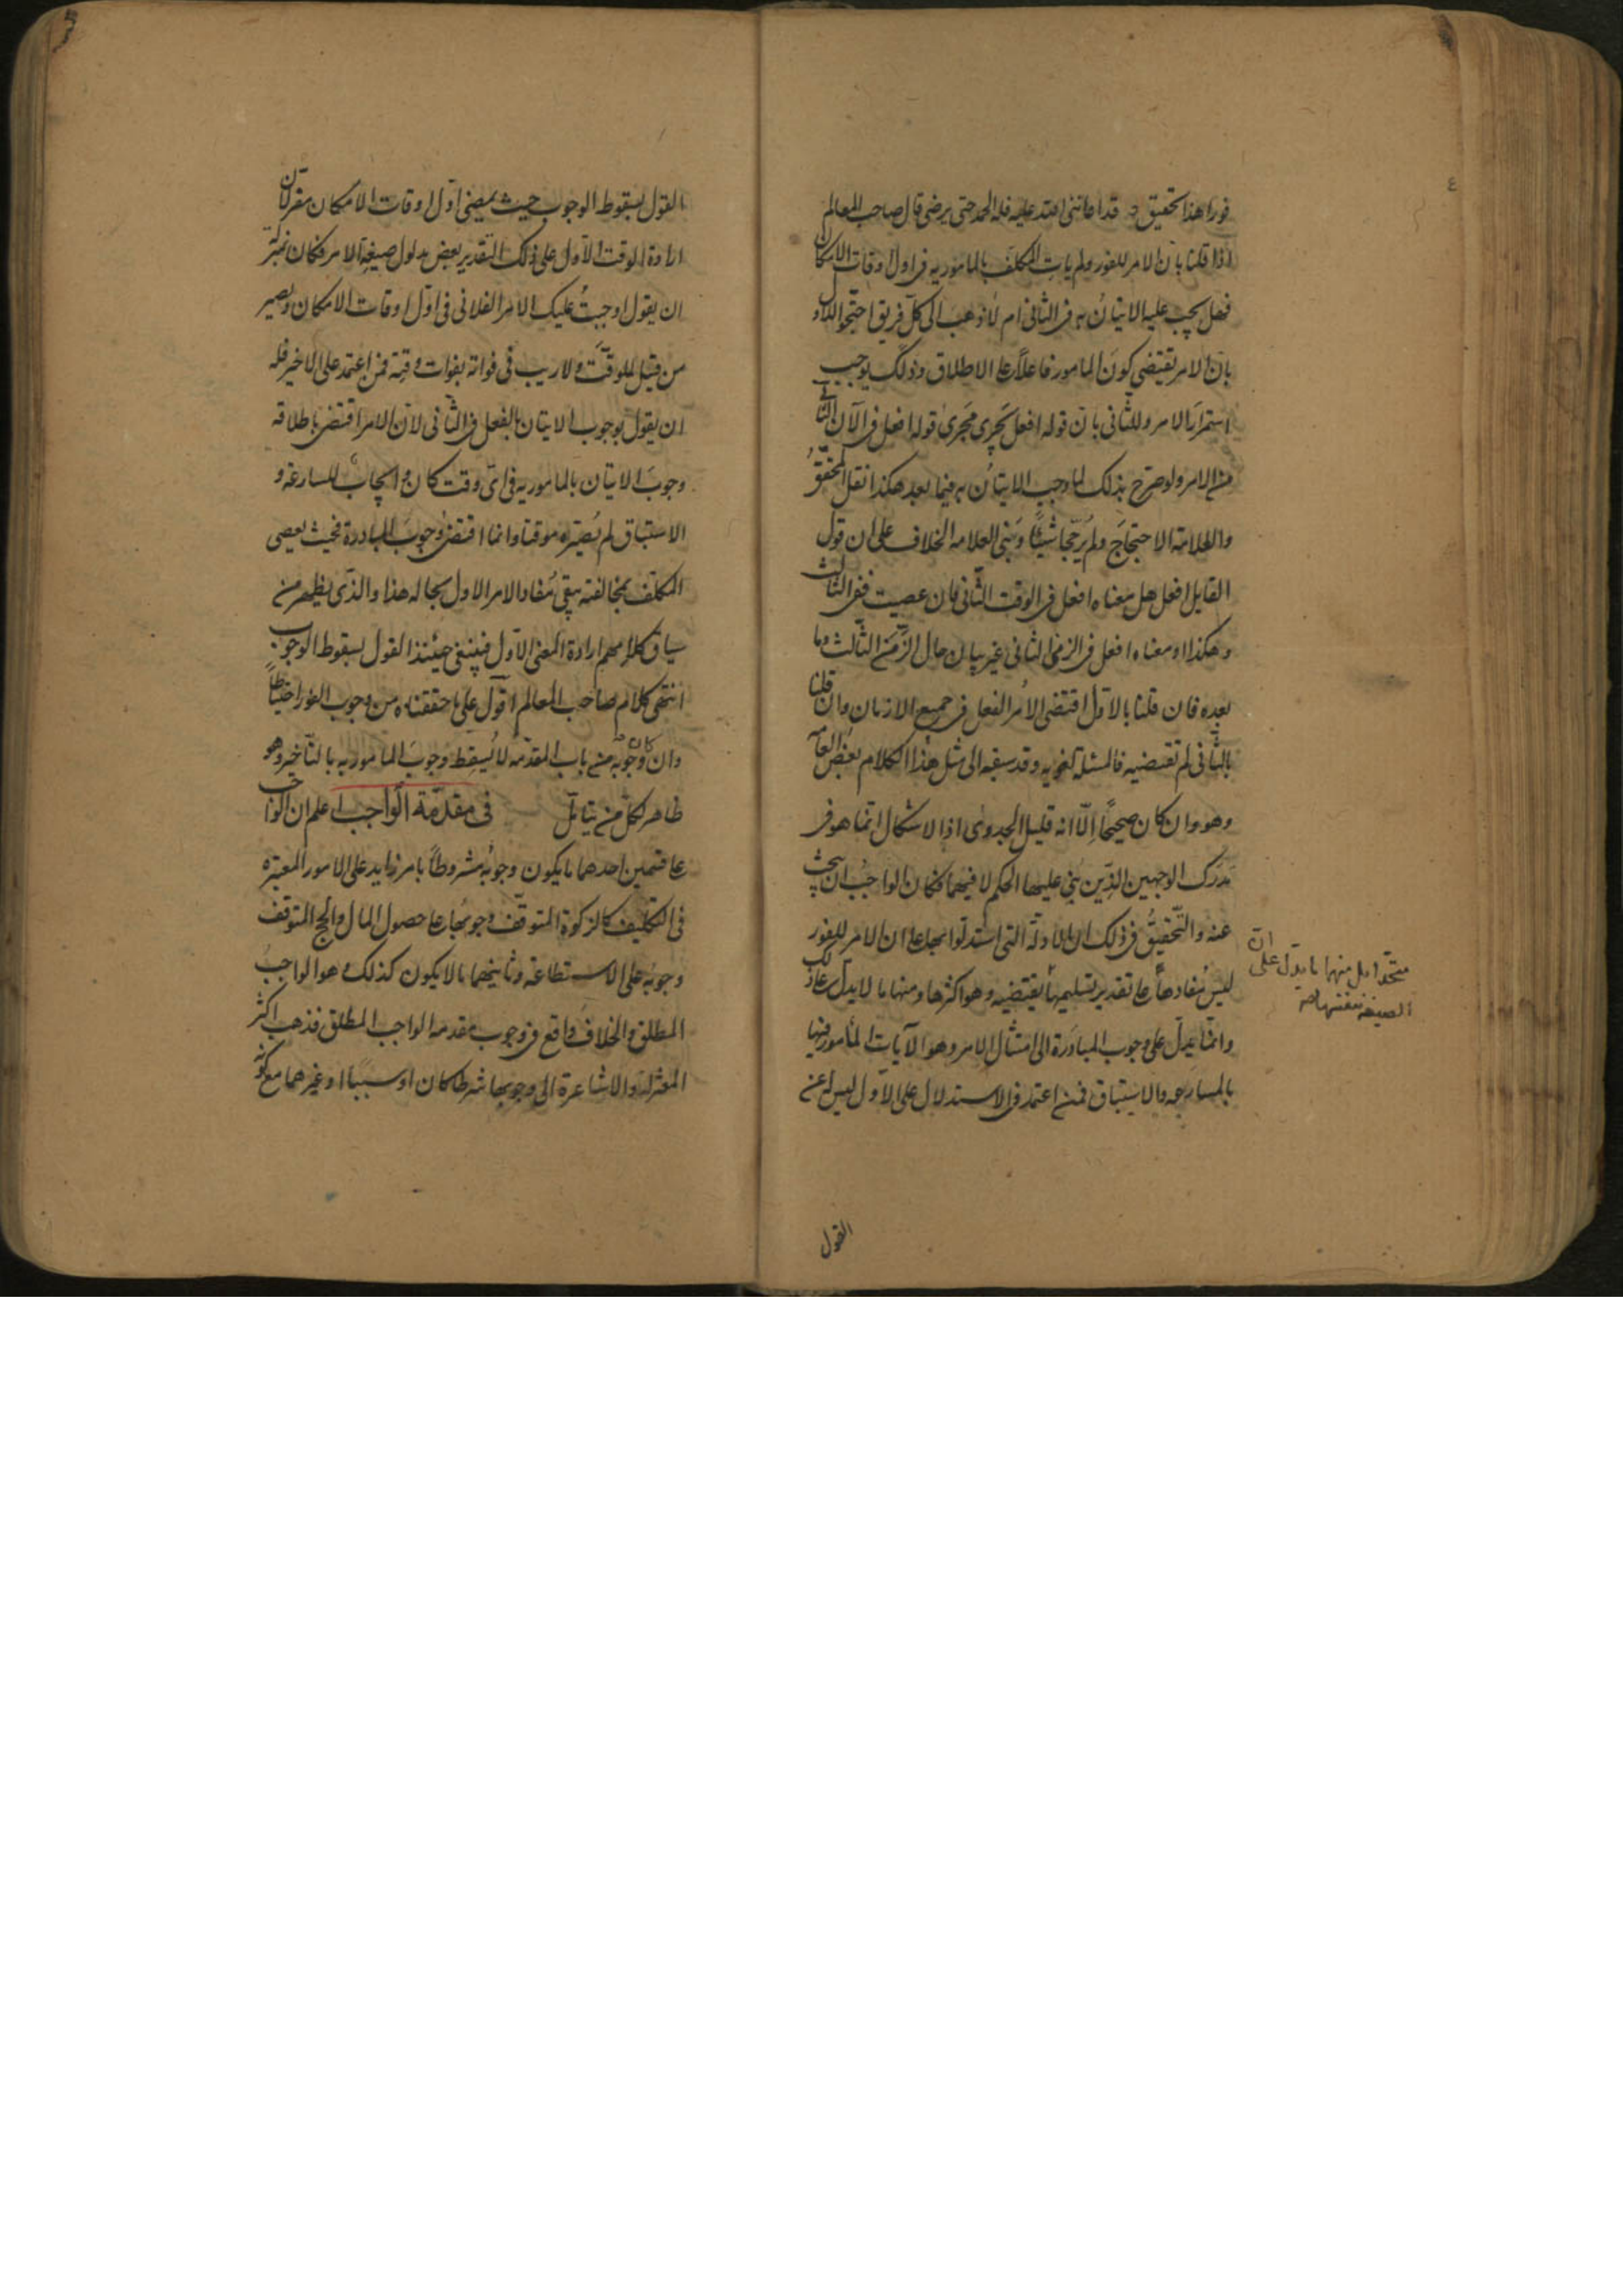 فورا هذا تحقيق قد اعاننى الله عليه فله الحمد حتى يرضى قال صاحب المعالم
اذا قلنا بان الامر للفور ولم يات المكلف بالمامور به فى اول اوقات الامكان
فهل يجب عليه الاتيان به فى الثانى ام لا ذهب الى كل فريق احتجوا للاول
بان الامر يقتضى كون المامور فاعلا على الاطلاق وذلك يوجب
استمرار الامر وللثانى بان قوله افعل يجرى مجرى قوله افعل فى الآن الثانى
من الامر ولو صرح بذلك لما وجب الاتيان به فيما بعد هكذا نقل المحقق
والعلامة الاحتجاج ولم يرجحا شيئا وبنى العلامه الخلاف على ان قول
القايل افعل هل معناه افعل فى الوقت الثانى فان عصيت ففى الثالث
وهكذا او معناه افعل فى الزمن الثانى غير بيان حال الزمن الثالث وما
بعده فان قلنا بالاول اقتضى الامر الفعل فى جميع الازمان وان قلنا
بالثانى لم تقتضيه فالمسئلة لغويه وقد سبقه الى مثل هذا الكلام بعض العامة
وهو وان كان صحيحا الا انه قليل الجدوى اذ الاشكال انما هو فى
مدرك الوجهين الذين بنى عليهما الحكم لا فيهما فكان الواجب ان يبحث
عنه والتحقيق فى ذلك ان الادلة التى استدلوا بها على ان الامر للفور
ليس مفادها على تقدير تسليمها يقتضيه وهو اكثرها ومنها ما لا يدل على ذلك
وانما يدل على وجوب المبادرة الى امتثال الامر وهو الآيات المأمور فيها
بالمسارعه والاستباق فمن اعتمد فى الاستدلال على الاول ليس له عن
متحدا بل منها ما يدل على ان
الصيغة بنفسها
القول
القول بسقوط الوجوب حيث يمضى اول اوقات الامكان مفر لان
ارادة الوقت الاول على ذلك التقدير بعض مدلول صيغة الامر فكان بمنزلة
ان يقول اوجبت عليك الامر الفلانى فى اول اوقات الامكان ويصير
من قبيل الموقت ولا ريب فى فواته بفوات وقته فمن اعتمد على الاخير فله
ان يقول بوجوب الاتيان بالفعل فى الثانى لان الامر اقتضى باطلاقه
وجوب الاتيان بالمامور به فى اى وقت كان وايجاب المسارعة و
الاستباق لم يصيره موقتا وانما اقتضى وجوب المبادرة فحيث يعصى
المكلف بمخالفته يبقى مفاد الامر الاول بحاله هذا والذى يظهر من
سياق كلامهم ارادة المعنى الاول فينبغى حينئذ القول بسقوط الوجوب
انتهى كلام صاحب المعالم اقول على ما حققناه من وجوب الفور احتياطا
وان كان وجوبه من باب المقدمه لا يسقط وجوب المامور به بالتاخير وهو
ظاهر لكل من يتامل فى مقدمة الواجب اعلم ان الواجب
على قسمين احدهما ما يكون وجوبه مشروطا بامر زايد على الامور المعتبره
فى التكليف كالزكوة المتوقف وجوبها على حصول المال والحج المتوقف
وجوبه على الاستطاعة وثانيهما ما لا يكون كذلك وهو الواجب
المطلق والخلاف واقع فى وجوب مقدمه الواجب المطلق فذهب اكثر
المعتزلة والاشاعرة الى وجوبها شرطا كان او سببا او غيرهما مع كونه